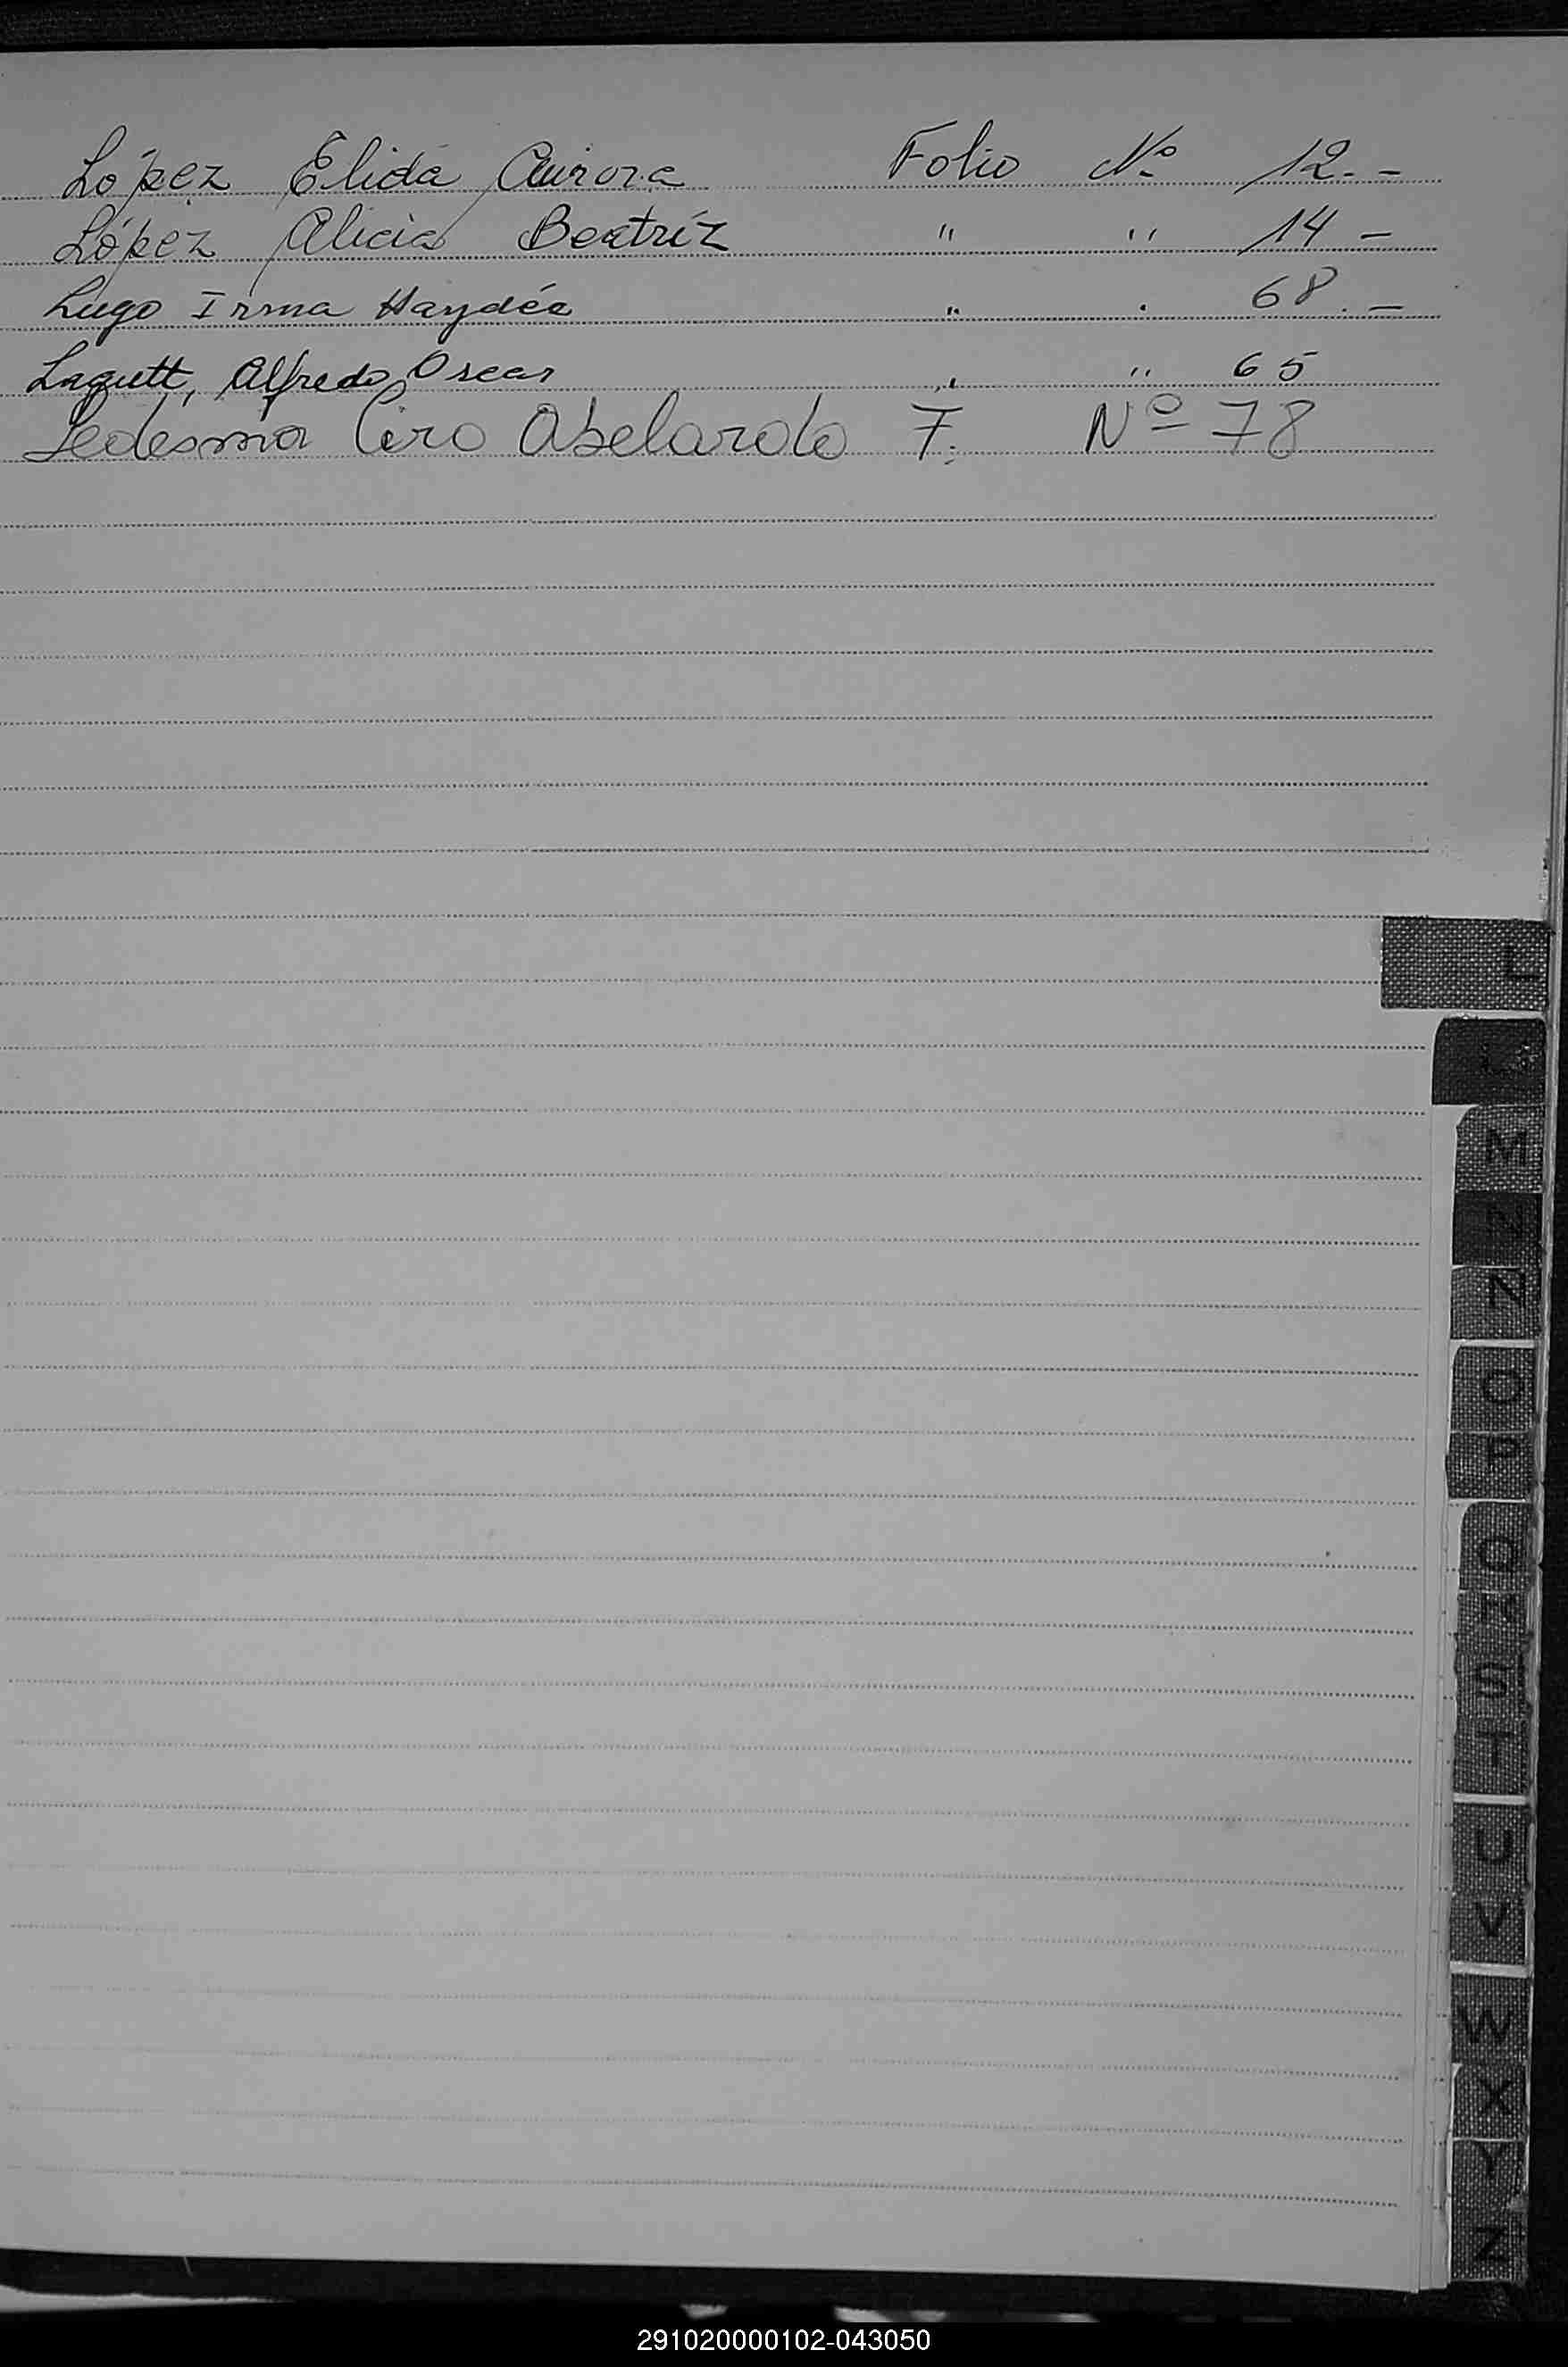 López Elida Aurora Folio Nº 12.-
López Alicia Beatríz " " 14 -
Lugo Irma Haydée " " 68.-
Lagutt, Alfredo Oscar " " 65
Ledesma Ciro Abelardo F. Nº 78
L
L
M
N
N
O
P
Q
R
S
T
U
V
W
X
Y
Z
291020000102-043050